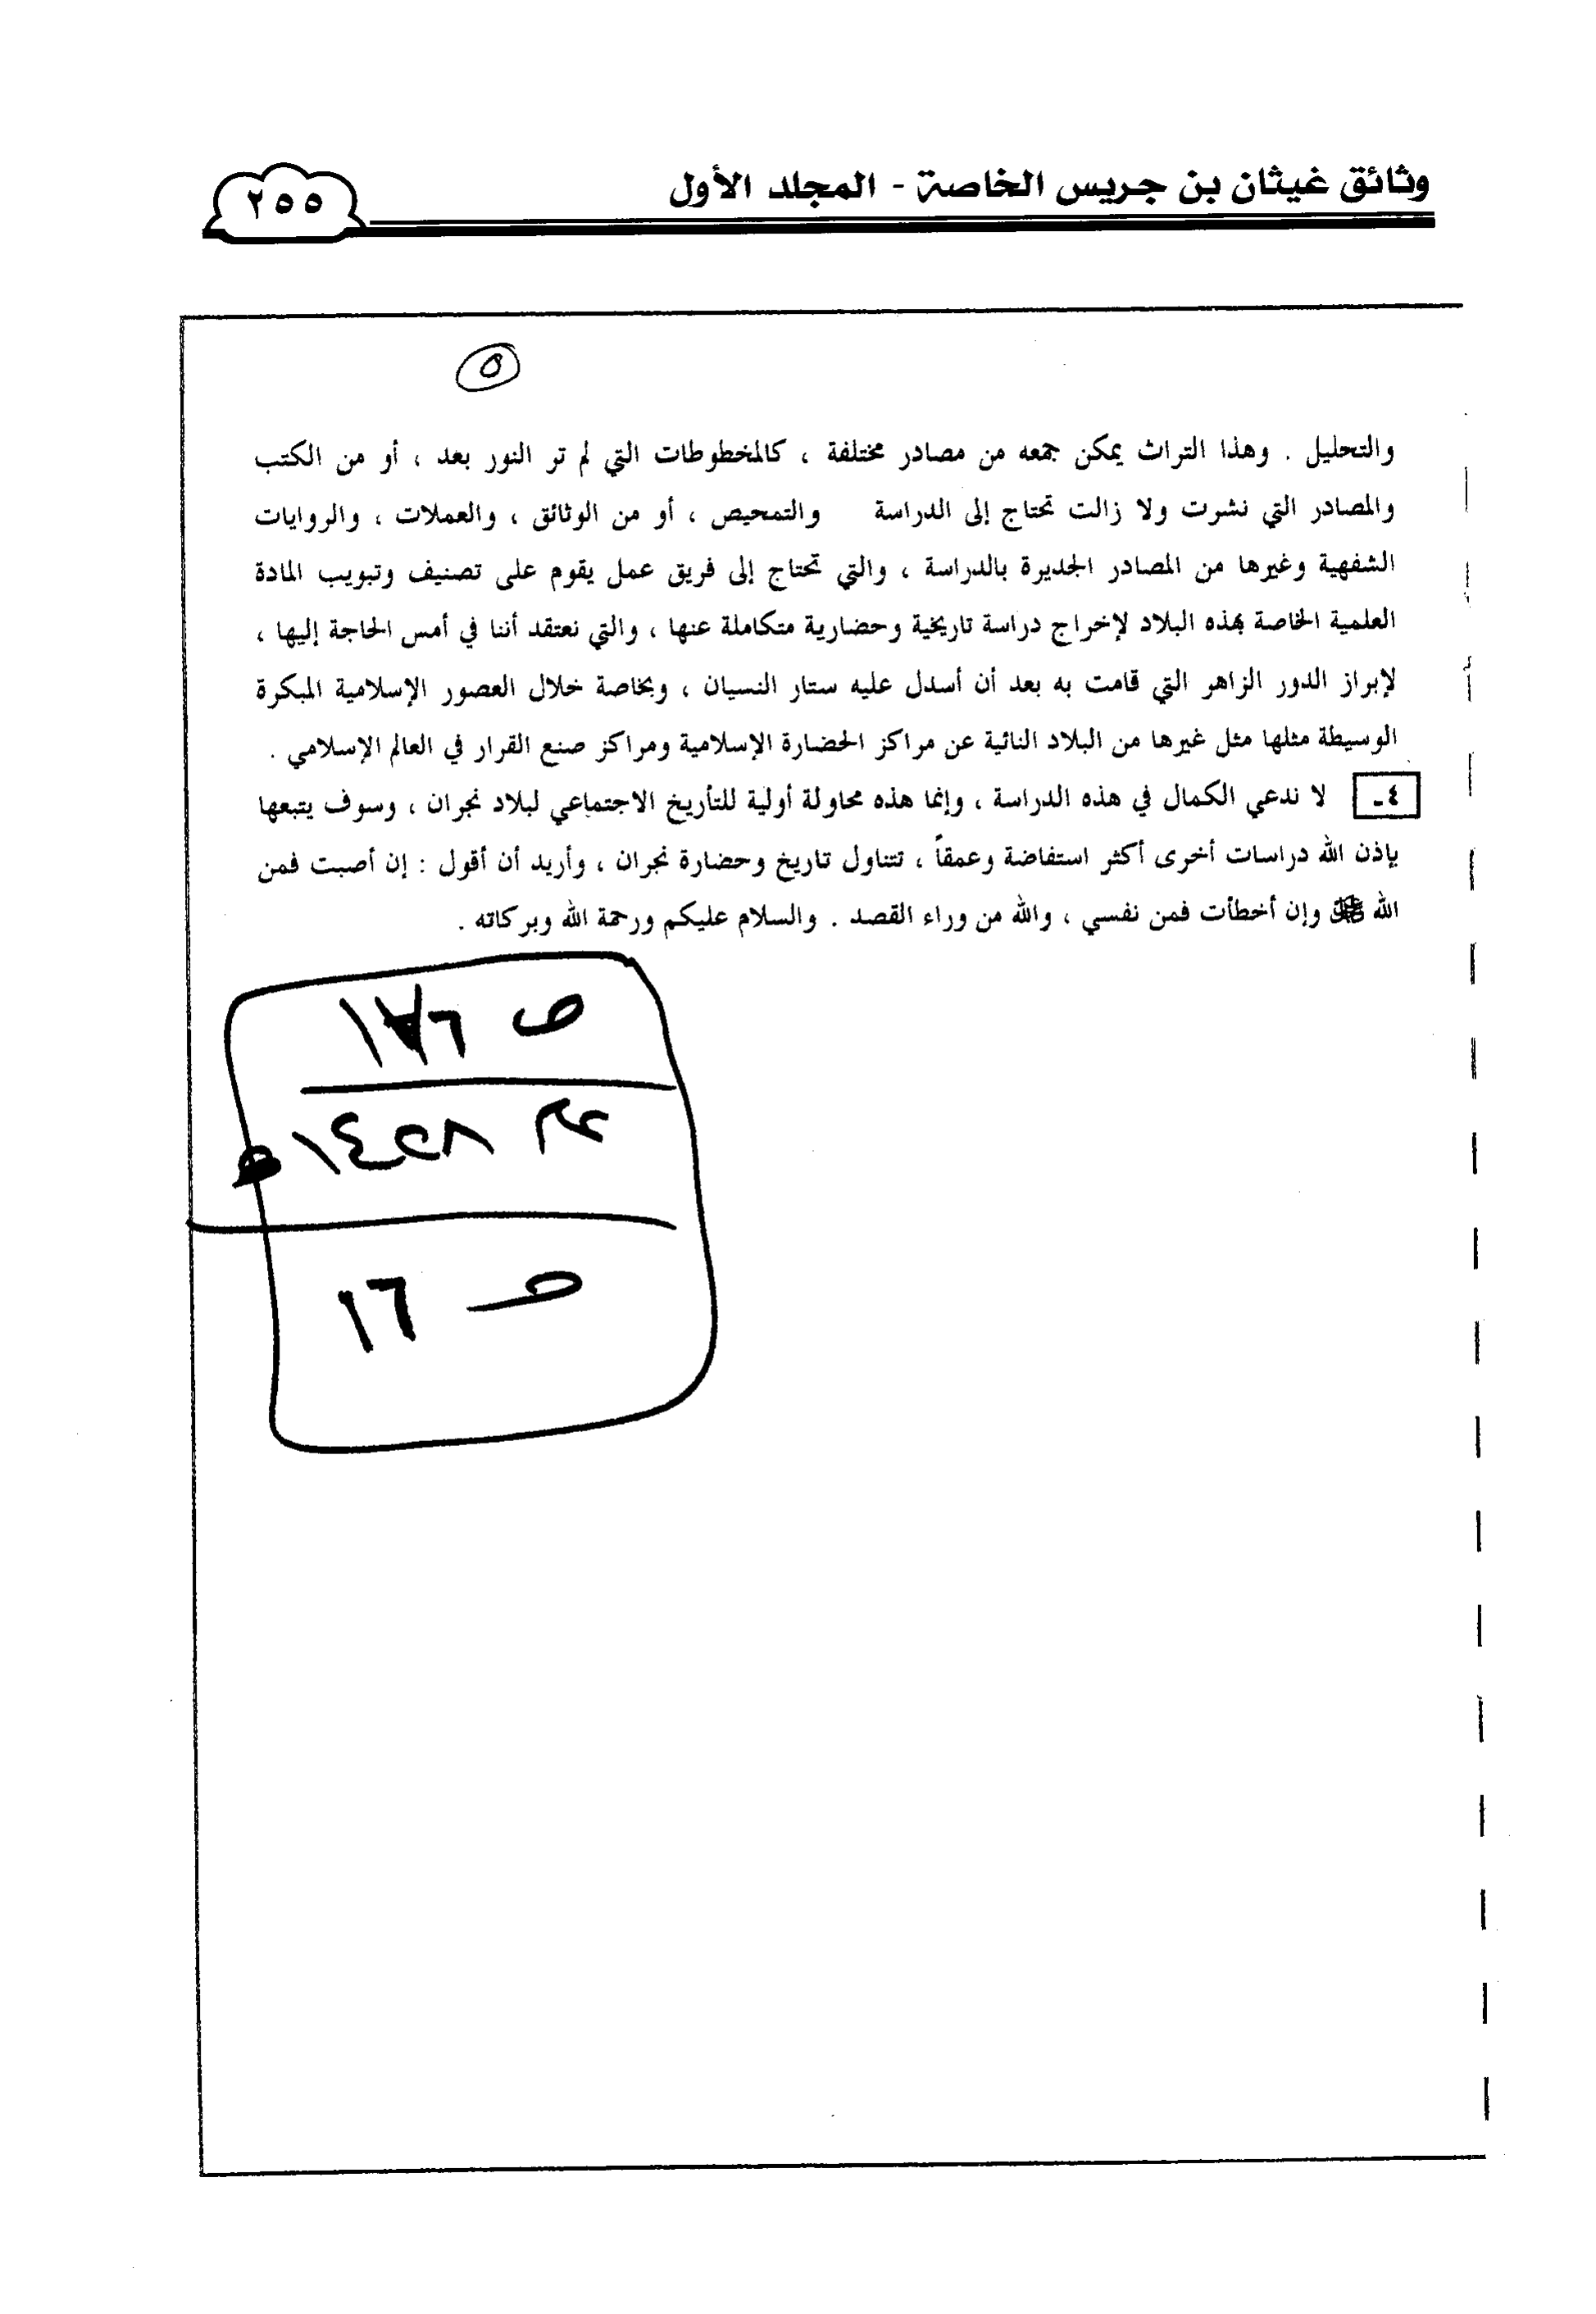 وثائق غيثان بن جريس الخاصة - المجلد الأول
٢٥٥
٥
والتحليل . وهذا التراث يمكن جمعه من مصادر مختلفة ، كالمخطوطات التي لم تر النور بعد ، أو من الكتب
والمصادر التي نشرت ولا زالت تحتاج إلى الدراسة والتمحيص ، أو من الوثائق ، والعملات ، والروايات
الشفهية وغيرها من المصادر الجديرة بالدراسة ، والتي تحتاج إلى فريق عمل يقوم على تصنيف وتبويب المادة
العلمية الخاصة بهذه البلاد لإخراج دراسة تاريخية وحضارية متكاملة عنها ، والتي نعتقد أننا في أمس الحاجة إليها ،
لإبراز الدور الزاهر التي قامت به بعد أن أسدل عليه ستار النسيان ، وبخاصة خلال العصور الإسلامية المبكرة
الوسيطة مثلها مثل غيرها من البلاد النائية عن مراكز الحضارة الإسلامية ومراكز صنع القرار في العالم الإسلامي .
٤- لا ندعي الكمال في هذه الدراسة ، وإنما هذه محاولة أولية للتأريخ الاجتماعي لبلاد نجران ، وسوف يتبعها
بإذن الله دراسات أخرى أكثر استفاضة وعمقاً ، تتناول تاريخ وحضارة نجران ، وأريد أن أقول : إن أصبت فمن
الله وإن أخطأت فمن نفسي ، والله من وراء القصد . والسلام عليكم ورحمة الله وبركاته .
ص
ص ١٦